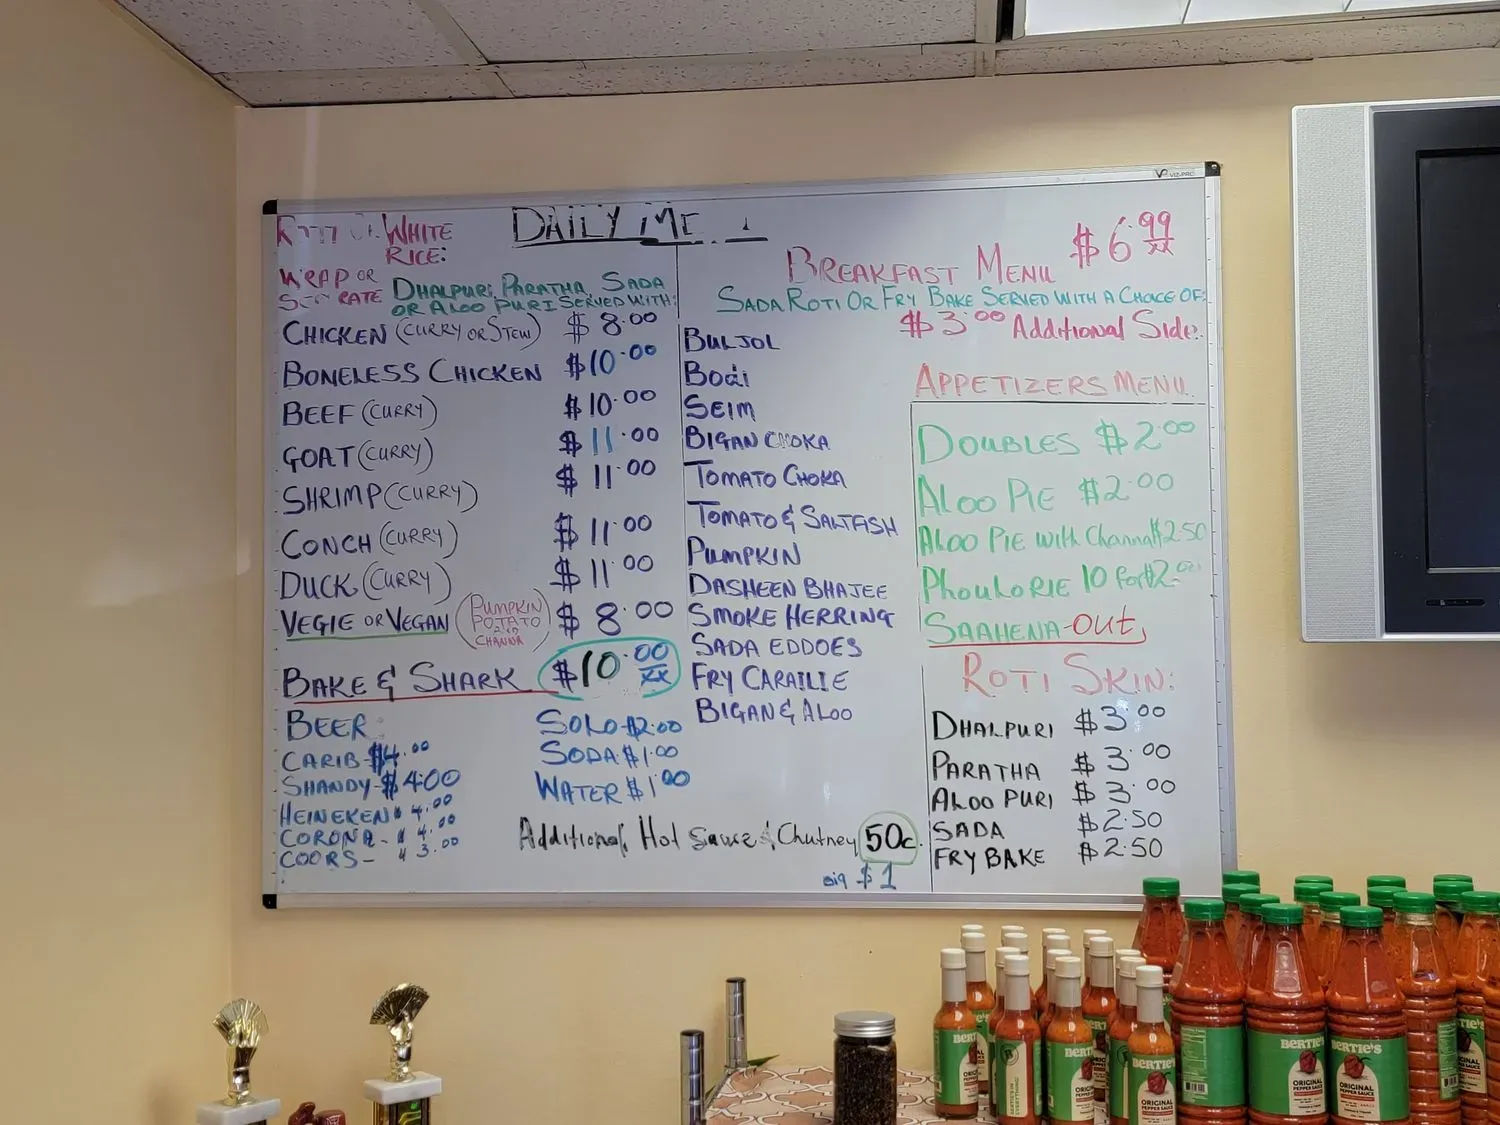 DAILY ME
WHITE
RICE:
WRAP OR
DHALPURI, PARATHA, SADA
OR ALOO PURI SERVED WITH:
CHICKEN (CURRY OR STEW) $8.00
BONELESS CHICKEN $10.00
BEEF (CURRY) $10.00
GOAT (CURRY) $11.00
SHRIMP (CURRY) $11.00
CONCH (CURRY) $11.00
DUCK (CURRY) $11.00
VEGIE OR VEGAN (PUMPKIN POTATO AND CHANNA) $8.00
BAKE & SHARK $10.00 xx
BEER
CARIB $4.00
SHANDY-$4.00
HEINEKEN $4.00
CORONA-$4.00
COORS-$3.00
SOLO-$2.00
SODA $1.00
WATER $1.00
Additional Hot Sauce & Chutney 50c.
Big $1
BREAKFAST MENU $6.99 xx
SADA ROTI OR FRY BAKE SERVED WITH A CHOICE OF:
$3.00 Additional Side.
BULJOL
BODI
SEIM
BIGAN CHOKA
TOMATO CHOKA
TOMATO & SALTFISH
PUMPKIN
DASHEEN BHAJEE
SMOKE HERRING
SADA EDDOES
FRY CARAILIE
BIGAN & ALOO
APPETIZERS MENU
DOUBLES $2.00
ALOO PIE $2.00
ALOO PIE with Channa $2.50
PHOULORIE 10 for $2.00
SAAHENA-OUT
ROTI SKIN:
DHALPURI $3.00
PARATHA $3.00
ALOO PURI $3.00
SADA $2.50
FRY BAKE $2.50
VIZ-PRO
BERTIE'S
ORIGINAL
PEPPER SAUCE
BERTIE'S
ORIGINAL
PEPPER SAUCE
BERTIE'S
ORIGINAL
PEPPER SAUCE